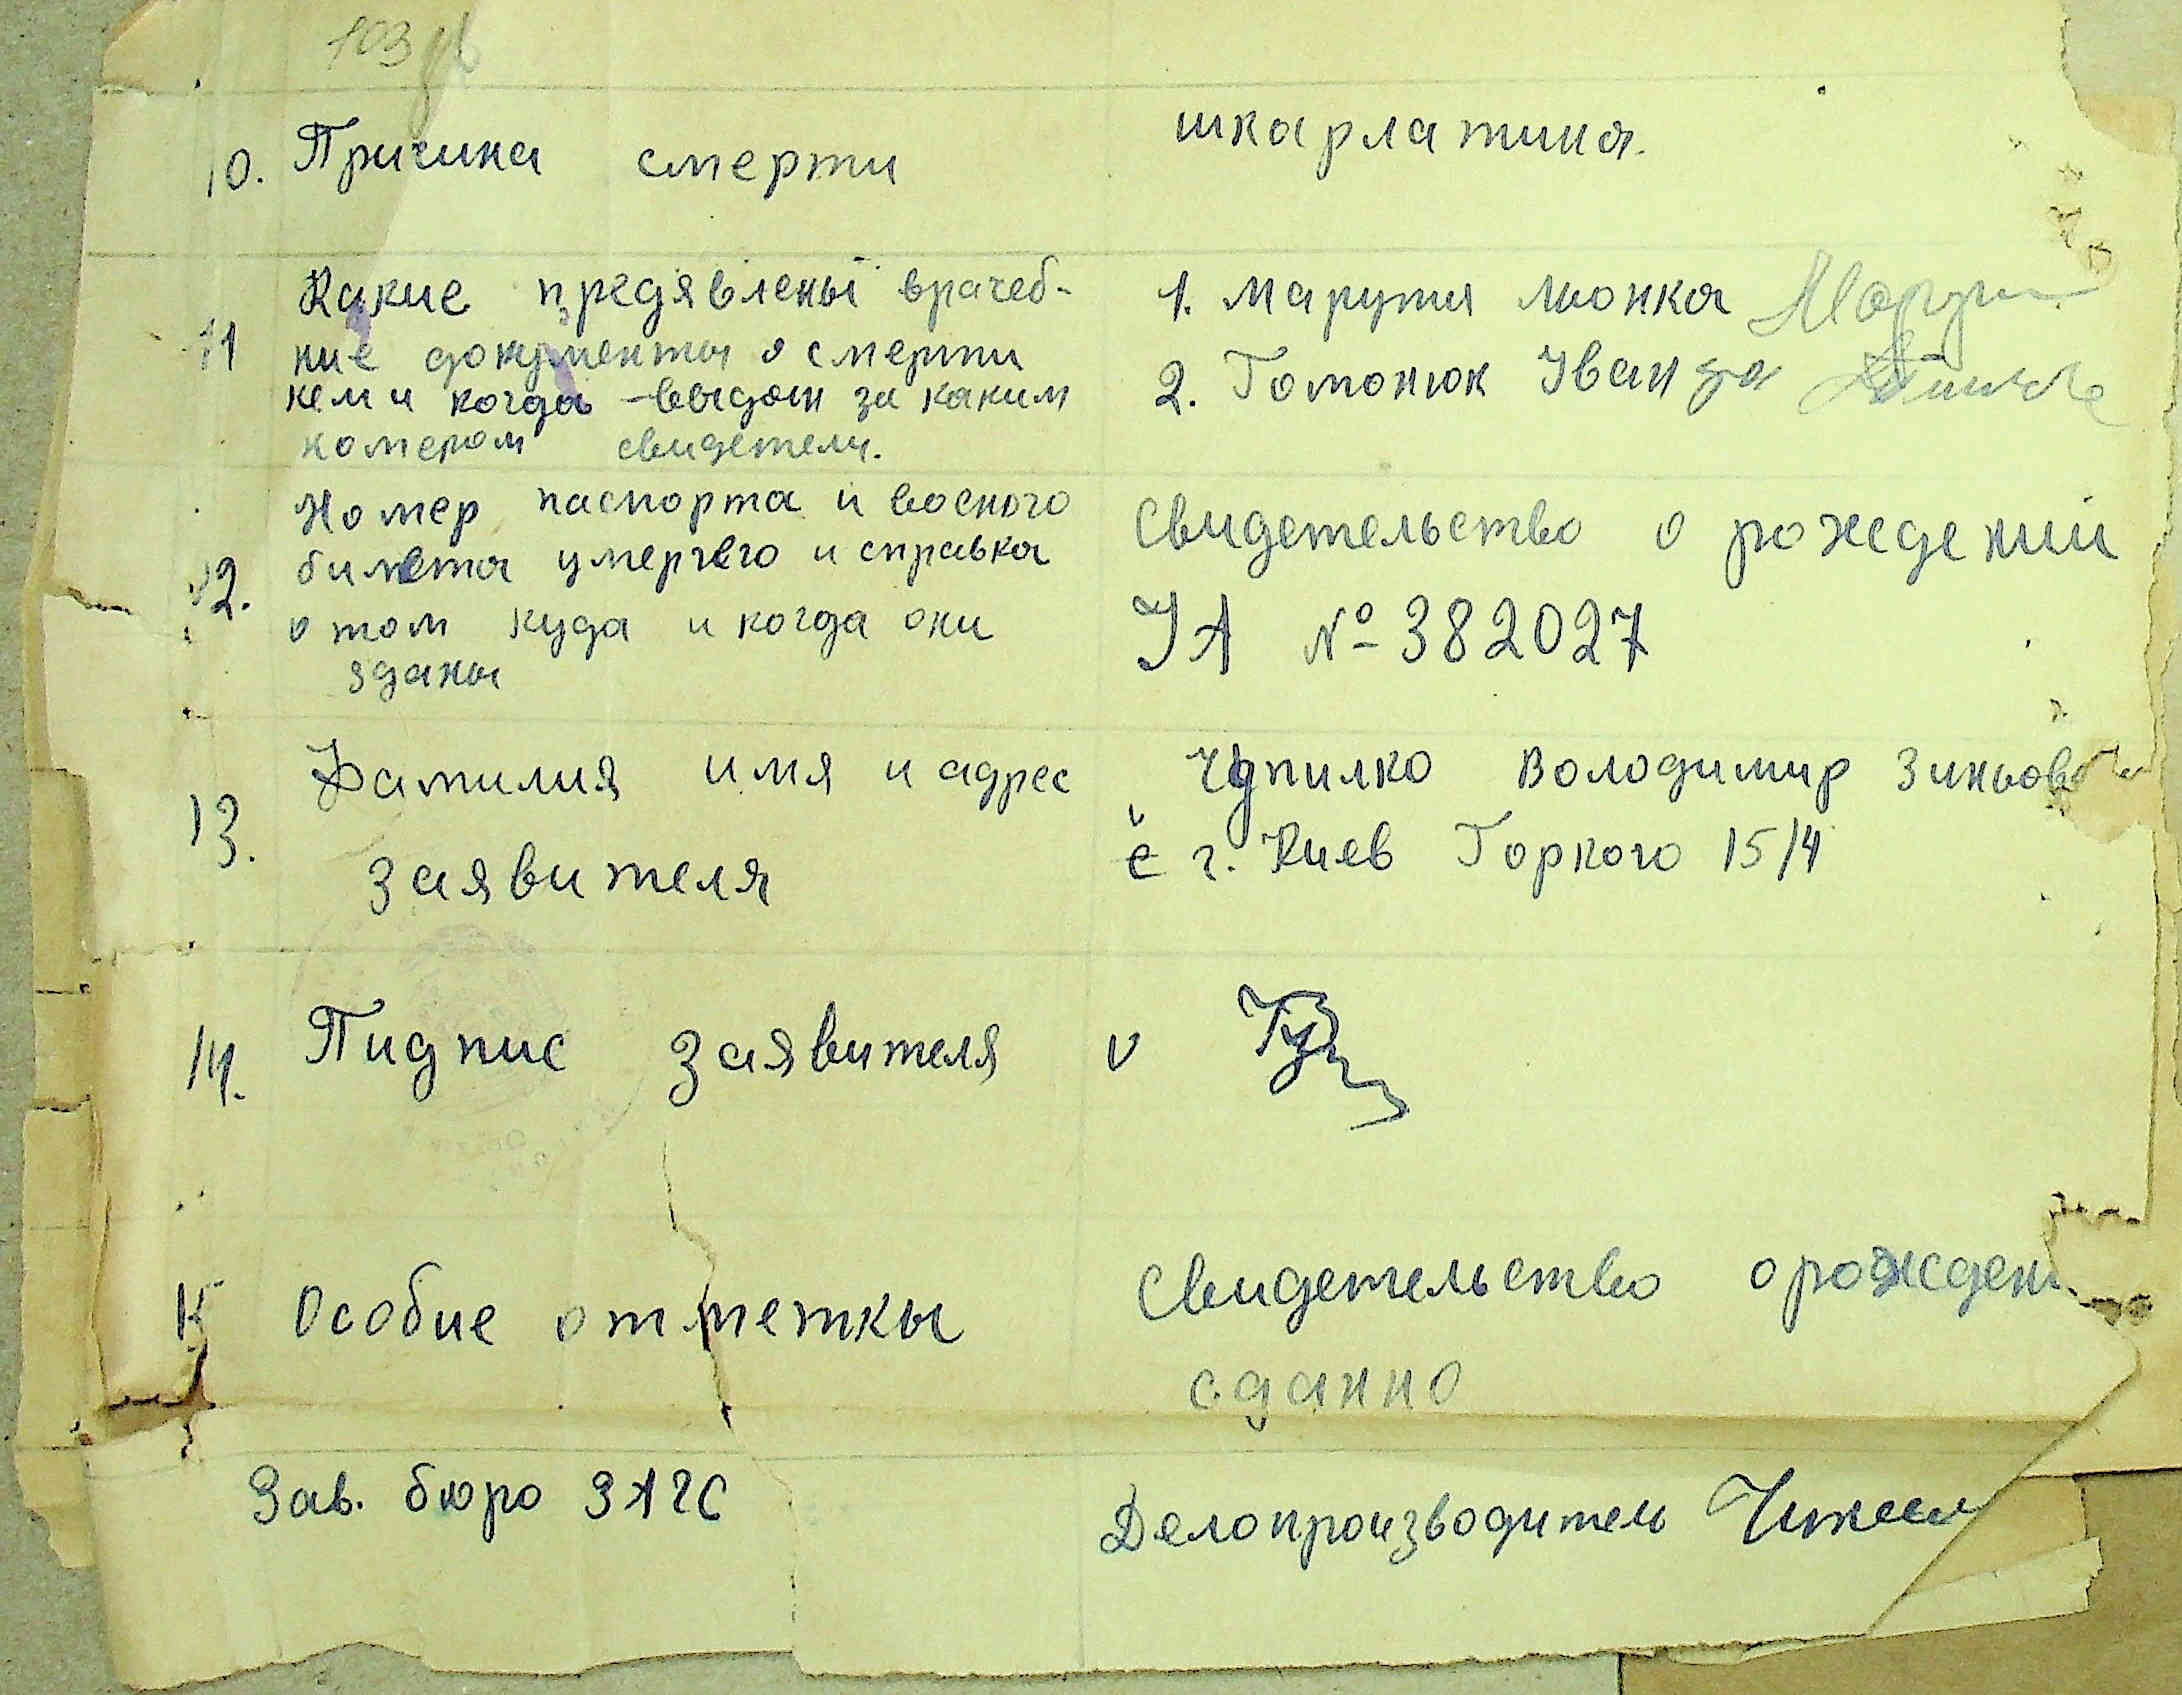 103
10. Причина смерти шкарлатина.
11 Какие предявлены врачеб-
ние документы о смерти
кем и когда выдан за каким
номером свидетели.
1. Марутя Июнка
2. Гомонюк Іван
12. Номер паспорта и военого
билета умерчего и справка
о том куда и когда они
зданы
Свидетельство о рождении
IА № 382027
13. Фамилия имя и адрес
заявителя
Чупилко Володимир Зиньович
г. Киев Горкого 15/4
14. Пидпис заявителя
15 Особие отметкы
Свидетельство о рожден
сданно
Зав. бюро ЗАГС Делопроизводитель